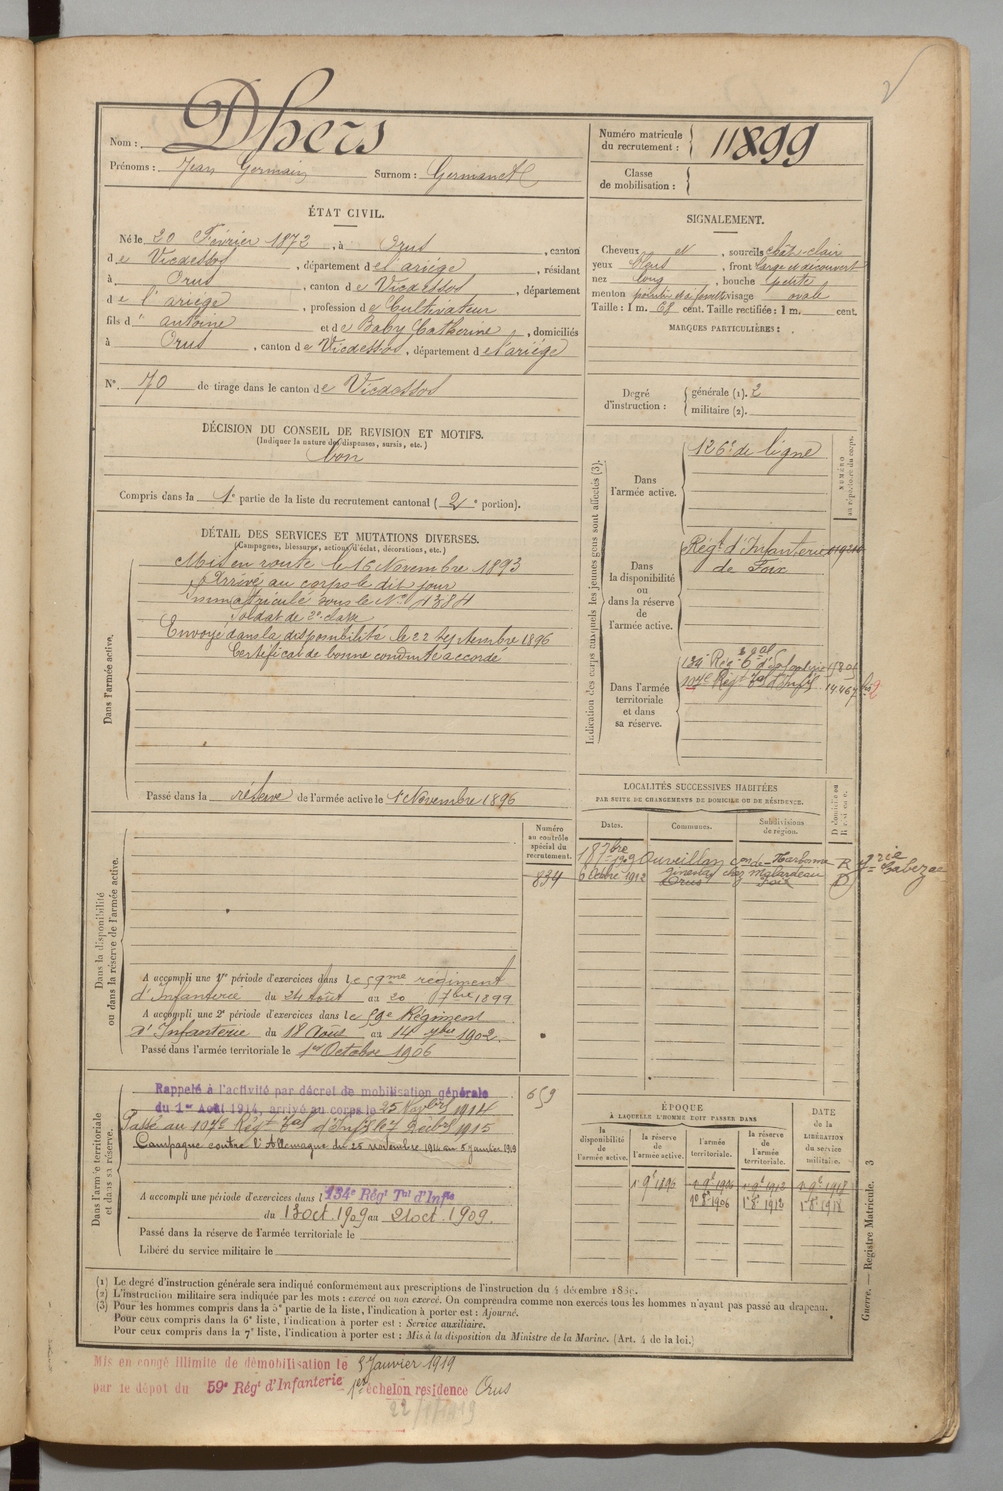 Nom : Dhers
Prénoms : Jean Germain Surnom : Germanet
Numéro matricule du recrutement : 11899
Classe de mobilisation :
ÉTAT CIVIL.
Né le 20 Février 1872, à Orus, canton
de Vicdessos, département de l'ariège, résidant
à Orus, canton de Vicdessos, département
de l'ariège, profession de Cultivateur
fils d'' antoine et de Baby Catherine, domiciliés
à Orus, canton de Vicdessos, département de l'ariège
N° 70 de tirage dans le canton de Vicdessos
DÉCISION DU CONSEIL DE REVISION ET MOTIFS.
(Indiquer la nature des dispenses, sursis, etc.)
bon
Compris dans la 1e partie de la liste du recrutement cantonal (2e portion).
SIGNALEMENT.
Cheveux et, sourcils chât-clair
yeux bleus, front large et découvert
nez long, bouche petite
menton visage ovale
Taille : 1 m. 68 cent. Taille rectifiée : 1 m. cent.
MARQUES PARTICULIÈRES :
Degré d'instruction : générale (1). 2
militaire (2).
DÉTAIL DES SERVICES ET MUTATIONS DIVERSES.
(Campagnes, blessures, actions d'éclat, décorations, etc.)
Dans l'armée active.
Mis en route le 16 Novembre 1893
Arrivé au corps le dit jour
Immatriculé sous le N° 4384
Soldat de 2e classe
Envoyé dans la disponibilité le 22 septembre 1896
Certificat de bonne conduite accordé
Passé dans la réserve de l'armée active le 1 Novembre 1896
Indication des corps auxquels les jeunes gens sont affectés (3).
NUMÉRO au répertoire du corps.
Dans l'armée active.
126e de ligne
Dans la disponibilité ou dans la réserve de l'armée active.
Régt d'Infanterie
de Foix
Dans l'armée territoriale et dans sa réserve.
134e Rég
107e Régt Tal d'Infie 14467
LOCALITÉS SUCCESSIVES HABITÉES
PAR SUITE DE CHANGEMENTS DE DOMICILE OU DE RÉSIDENCE.
Dates. Communes. Subdivisions de région. D domicile ou R résidence.
18 7bre 1909 Ouveillan con de Narbonne R
6 Octobre 1912 Ginestas chez Malardeau
Orus Foix D
Numéro au contrôle spécial du recrutement.
834
Dans la disponibilité ou dans la réserve de l'armée active.
A accompli une 1re période d'exercices dans le 59me régiment
d'Infanterie du 24 Août au 20 7bre 1899
A accompli une 2e période d'exercices dans le 59e Régiment
d'Infanterie du 18 Août au 14 7bre 1902.
Passé dans l'armée territoriale le 1er Octobre 1906
Dans l'armée territoriale et dans sa réserve.
Rappelé à l'activité par décret de mobilisation générale
du 1er Août 1914, arrivé au corps le 25 Novbre 1914
Passé au 107e Régt Tal d'Infie le 7 Décbre 1915
Campagne contre l'Allemagne du 25 novembre 1914 au 5 janvier 1919
659
A accompli une période d'exercices dans l 134e Régt Tal d'Infie
du 13 oct. 1909 au 21 oct. 1909.
Passé dans la réserve de l'armée territoriale le
Libéré du service militaire le
ÉPOQUE
À LAQUELLE L'HOMME DOIT PASSER DANS
DATE de la LIBÉRATION du service militaire.
la disponibilité de l'armée active. la réserve de l'armée active. l'armée territoriale. la réserve de l'armée territoriale.
1 9e 1896 1 9e 1906 1 9e 1912 1 9e 1918
1e 8e 1906 1e 8e 1912 1e 8e 1918
Guerre. — Registre Matricule. 3
(1) Le degré d'instruction générale sera indiqué conformément aux prescriptions de l'instruction du 4 décembre 1889.
(2) L'instruction militaire sera indiquée par les mots : exercé ou non exercé. On comprendra comme non exercés tous les hommes n'ayant pas passé au drapeau.
(3) Pour les hommes compris dans la 5e partie de la liste, l'indication à porter est : Ajourné.
Pour ceux compris dans la 6e liste, l'indication à porter est : Service auxiliaire.
Pour ceux compris dans la 7e liste, l'indication à porter est : Mis à la disposition du Ministre de la Marine. (Art. 4 de la loi.)
Mis en congé illimité de démobilisation le 5 Janvier 1919
par le dépôt du 59e Régt d'Infanterie 1er échelon résidence Orus